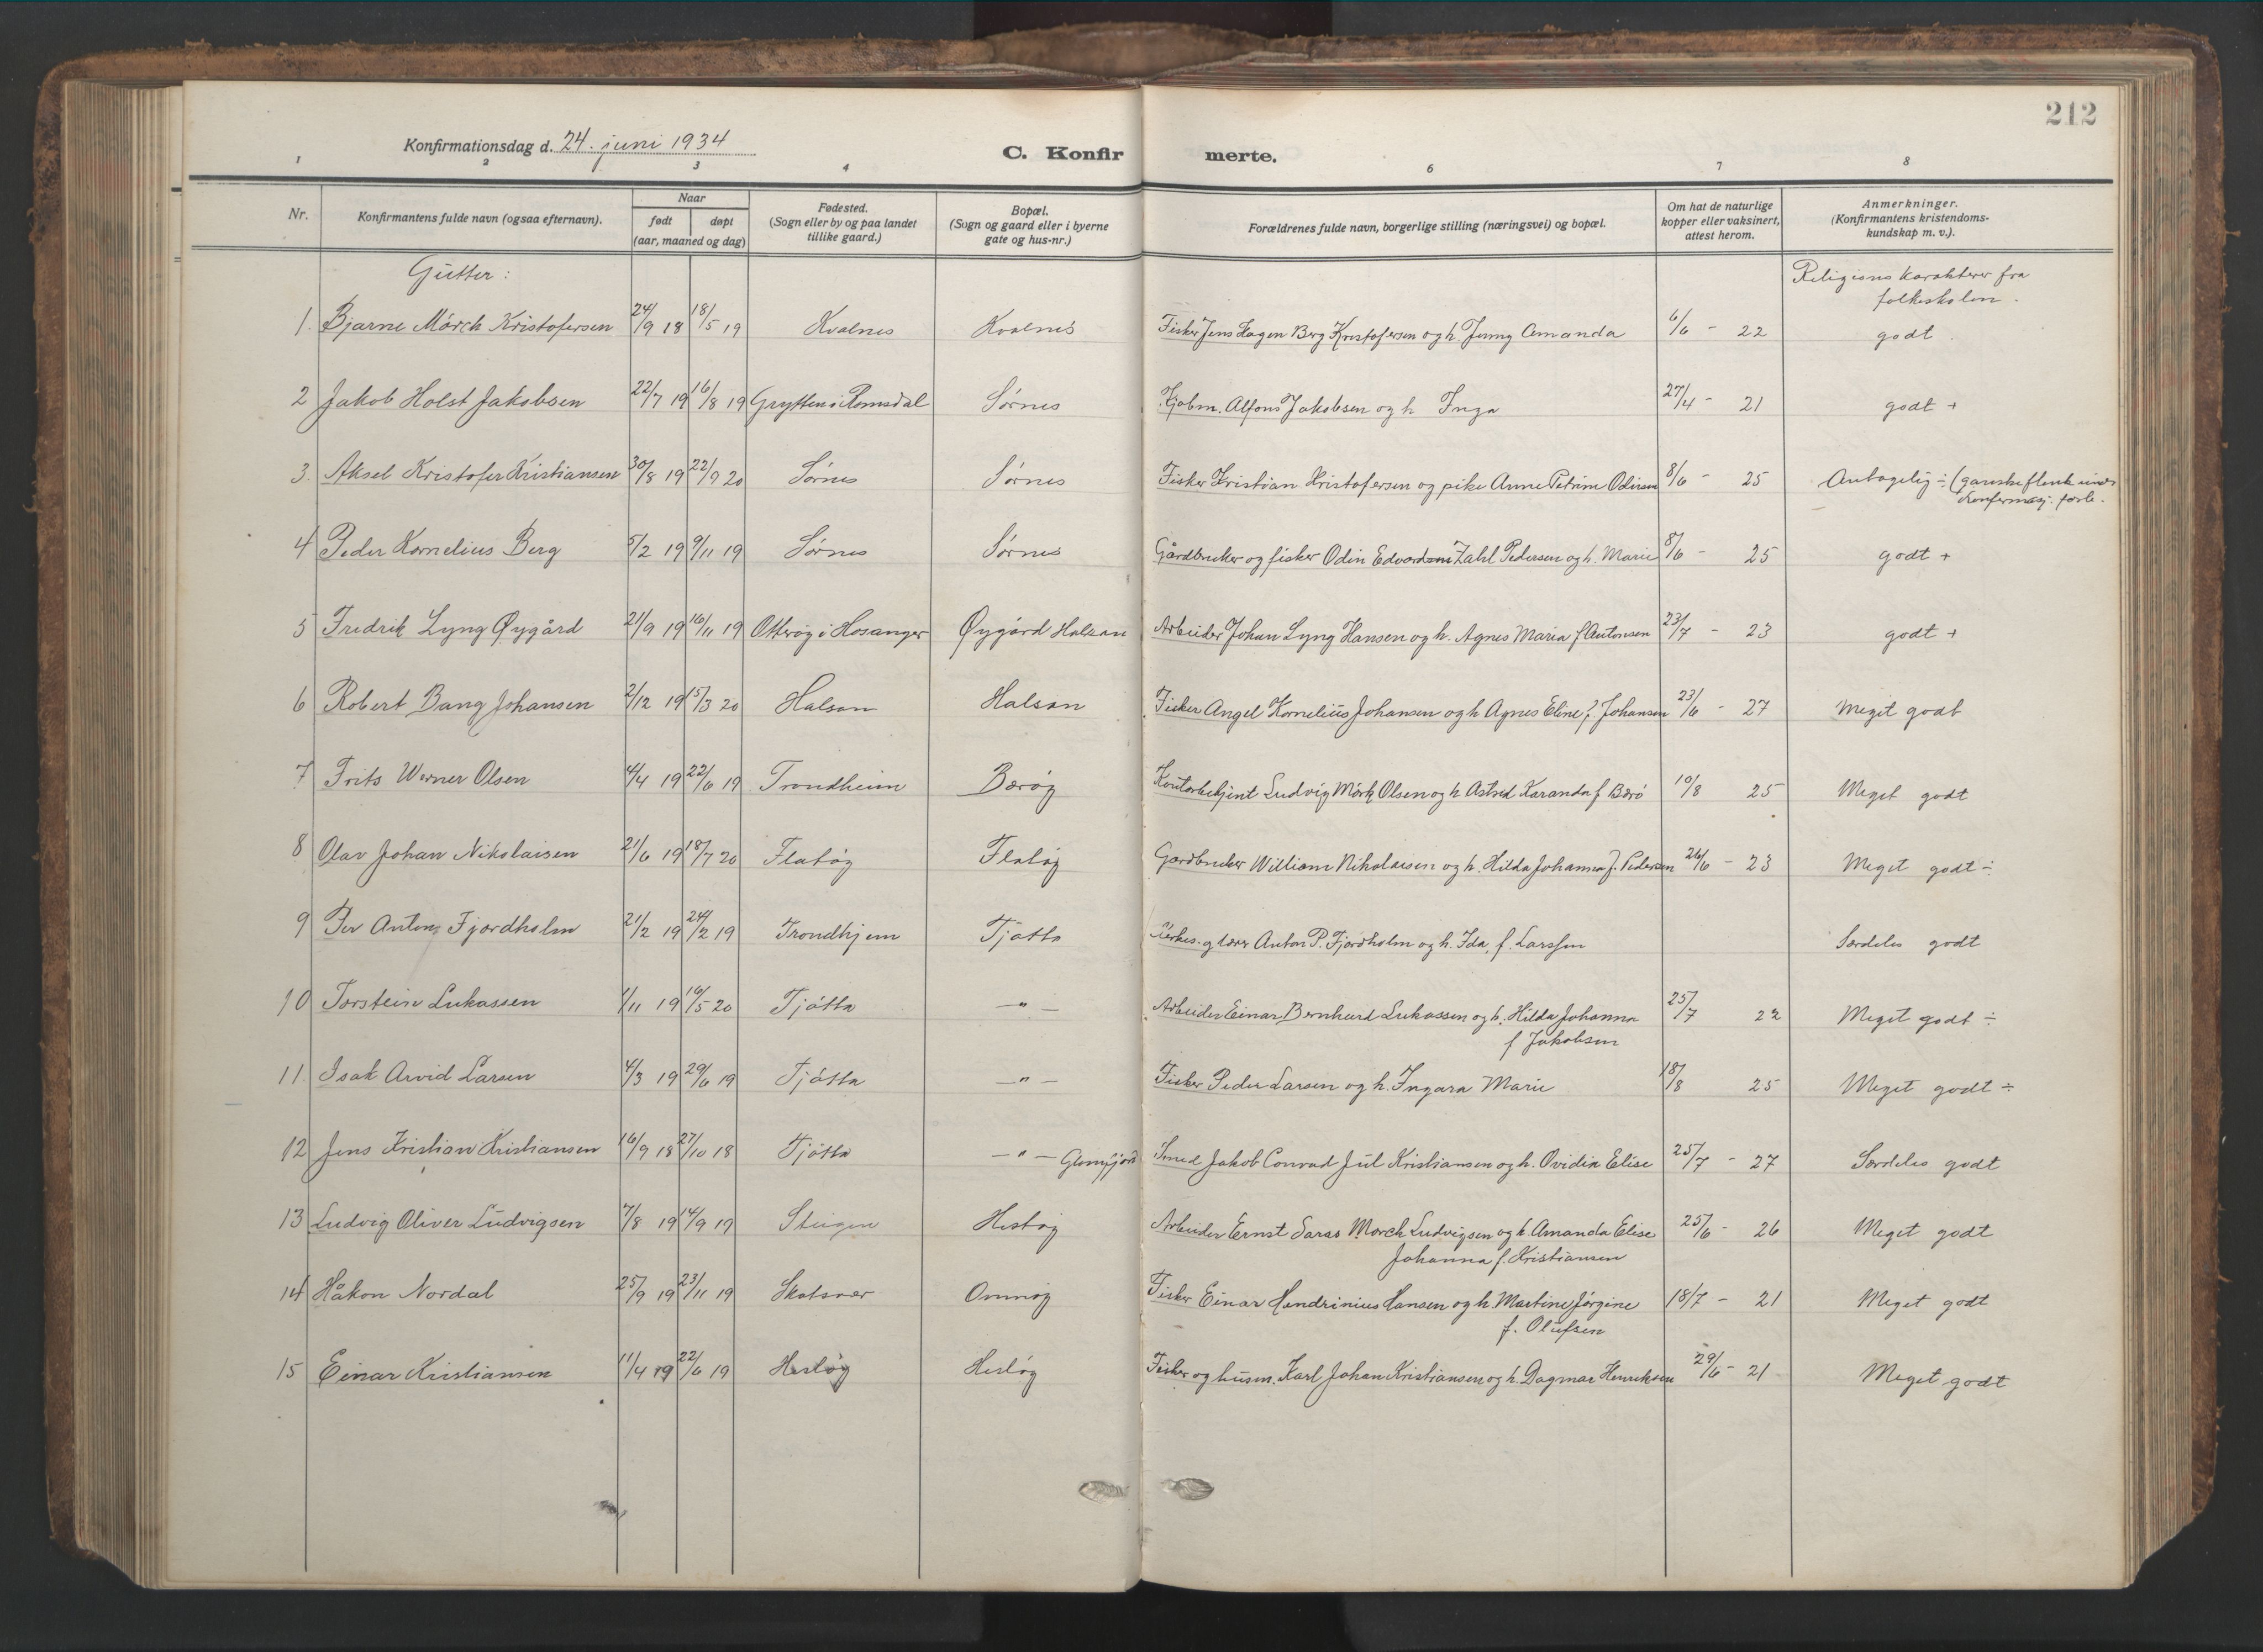 212
Konfirmationsdag d. 24. juni 1934
C. Konfir merte.
1 2 3 4 6 7 8
Nr. Konfirmantens fulde navn (ogsaa efternavn). Naar født døpt (aar, maaned og dag) Fødested. (Sogn eller by og paa landet tillike gaard.) Bopæl. (Sogn og gaard eller i byerne gate og hus-nr.) Forældrenes fulde navn, borgerlige stilling (næringsvei) og bopæl. Om hat de naturlige kopper eller vaksinert, attest herom. Anmerkninger. (Konfirmantens kristendoms-kundskap m. v.).
Gutter: Religions karakterer fra
folkeskolen.
1. Bjarne Mörch Kristofersen 24/9 18 18/5 19 Kvalnes Kvalnes Fisker Jens Hagen Berg Kristofersen og h. Jenny Amanda 6/6 - 22 godt
2 Jakob Holst Jakobsen 22/7 19 16/8 19 Grytten i Romsdal Sörnes Kjøbm. Alfons Jakobsen og h Inga 27/4 - 21 godt +
3. Aksel Kristofer Kristiansen 30/8 19 22/9 20 Sörnes Sörnes Fisker Kristian Kristofersen og pike Anne Petrine Odinsen 8/6 - 25 Antagelig ÷ (ganske flink under
Konfermasj. forb.
4 Peder Kornelius Berg 5/2 19 9/11 19 Sörnes Sörnes Gårdbruker og fisker Odin Edvard Zahl Pedersen og h. Marie 8/6 - 25 godt +
5 Fredrik Lyng Øygård 21/9 19 16/11 19 Otterøy i Hosanger Øygård Halsan Arbeider Johan Lyng Hansen og h. Agnes Maria f Antonsen 23/7 - 23 godt +
6 Robert Bang Johansen 2/12 19 15/3 20 Halsan Halsan Fisker Angel Kornelius Johansen og h Agnes Eline f. Johansen 23/6 - 27 Meget godt
7 Frits Werner Olsen 4/4 19 22/6 19 Trondheim Bærøy Kontorbetjent Ludvig Mörk Olsen og h Astrid Karanda f Bærö 10/8 25 Meget godt
8 Olav Johan Nikolaisen 21/6 19 18/7 20 Flatøy Flatøy Gardbruker William Nikolaisen og h. Hilda Johanna f. Pedersen 26/6 - 23 Meget godt ÷
9 Per Anton Fjordholm 21/2 19 24/2 19 Trondhjem Tjøtta Kirkes. og lærer Anton P. Fjordholm og h. Ida, f. Larssen Særdeles godt
10 Torstein Lukassen 1/11 19 16/5 20 Tjötta — " — Arbeider Einar Bernhard Lukassen og h. Hilda Johanna 25/7 22 Meget godt ÷
f Jakobsen
11 Isak Arvid Larsen 4/3 19 29/6 19 Tjötta — " — Fisker Peder Larsen og h. Ingara Marie 18/8 25 Meget godt ÷
12 Jens Kristian Kristiansen 16/9 18 27/10 18 Tjötta — " — Glomfjord Smed Jakob Conrad Jul Kristiansen og h. Ovidia Elise 25/7 - 27 Særdeles godt
13 Ludvig Oliver Ludvigsen 7/8 19 14/9 19 Steigen Hestøy Arbeider Ernst Saras Mørch Ludvigsen og h. Amanda Elise 25/6 - 26 Meget godt
Johanna f. Kristiansen
14 Håkon Nordal 25/9 19 23/11 19 Skotsvær Omnøy Fisker Einar Hendrinius Hansen og h. Martine Jörgine 18/7 - 21 Meget godt
f. Olufsen
15 Einar Kristiansen 11/4 19 22/6 19 Hestøy Hestøy Fisker og husm. Karl Johan Kristiansen og h. Dagmar Henriksen 29/6 - 21 Meget godt